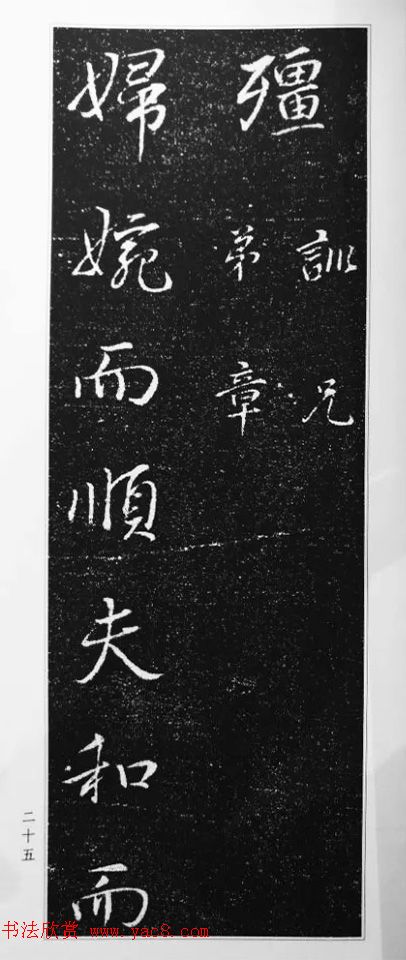 殭
訓兄
弟章
婦婉而順夫和而
二十五
书法欣赏 www.yac8.com